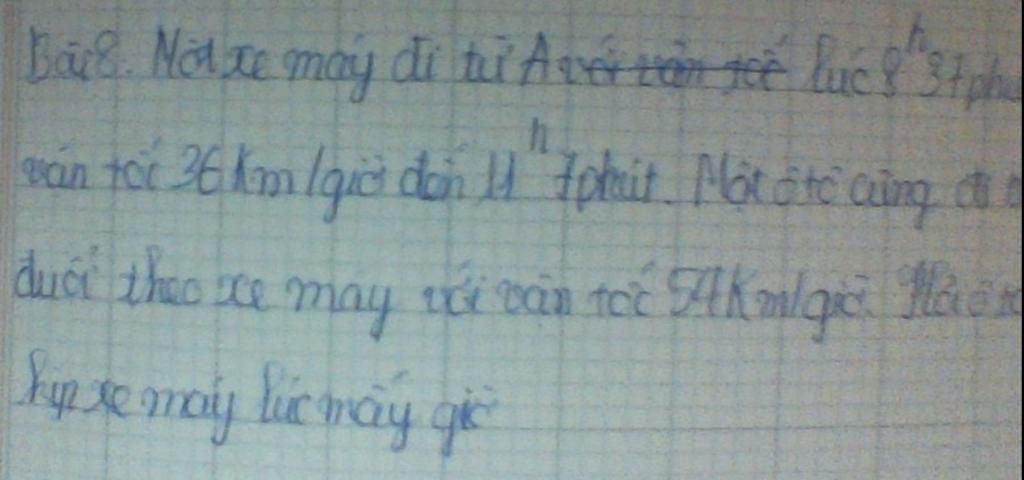 Bài 8. Một xe máy đi từ A với vận tốc lúc 8h 37 phú
vận tốc 36 Km/giờ đến 11h 7 phút. Một ô tô cũng đi
đuổi theo xe máy với vận tốc 54 Km/giờ. Hỏi ô tô
kịp xe máy lúc mấy giờ